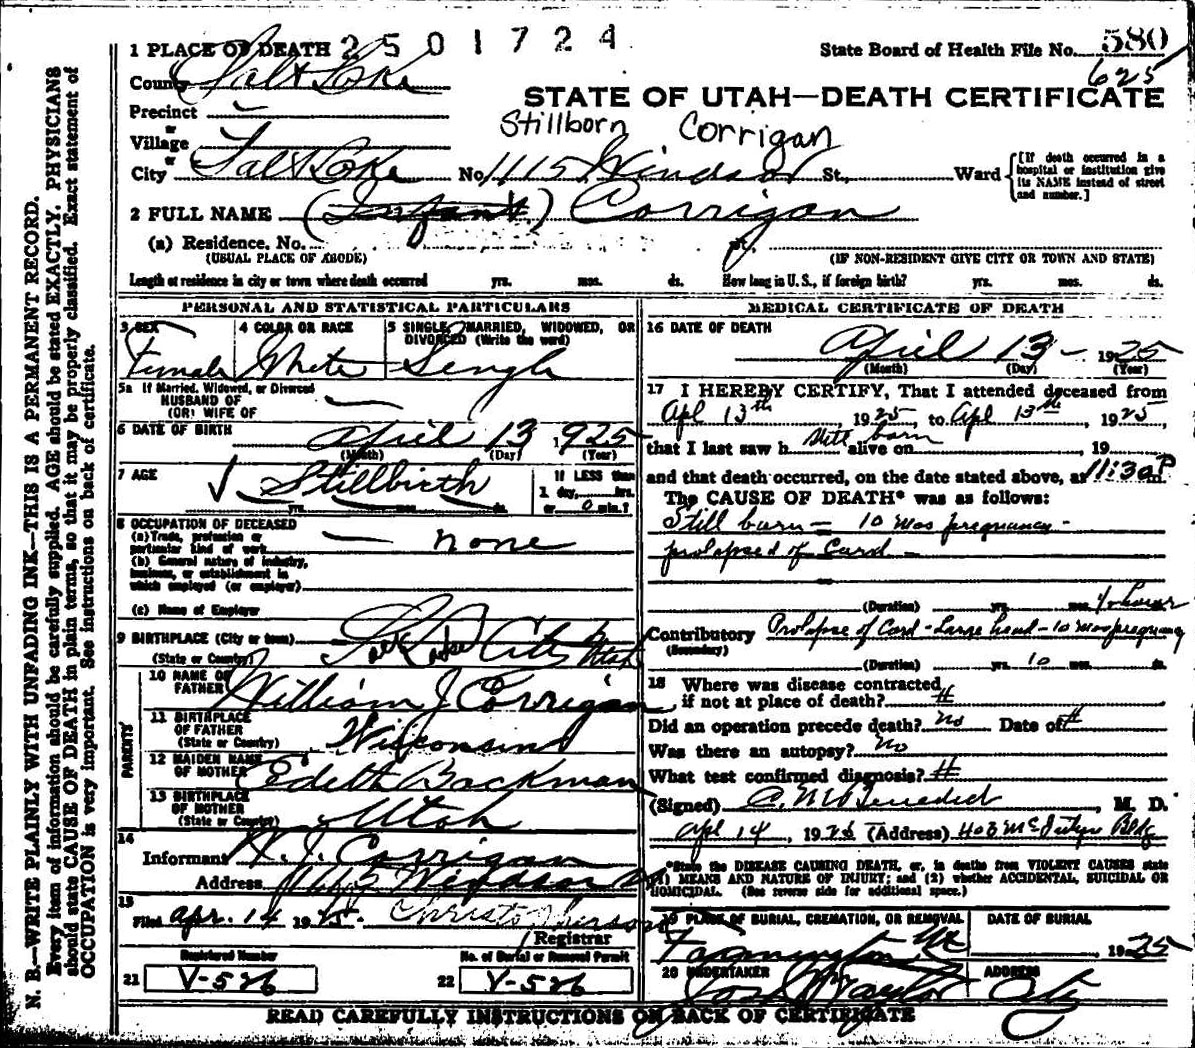 1 PLACE OF DEATH 2501724
State Board of Health File No. 580
625
County Salt Lake
STATE OF UTAH—DEATH CERTIFICATE
Precinct
or
Stillborn Corrigan
Village
or
City Salt Lake No. 1115 Windsor St., Ward
[If death occurred in a hospital or institution give its NAME instead of street and number.]
2 FULL NAME (Infant) Corrigan
(a) Residence. No. St.,
(USUAL PLACE OF ABODE) (IF NON-RESIDENT GIVE CITY OR TOWN AND STATE)
Length of residence in city or town where death occurred yrs. mos. ds. How long in U. S., if foreign birth? yrs. mos. ds.
PERSONAL AND STATISTICAL PARTICULARS
3 SEX 4 COLOR OR RACE 5 SINGLE, MARRIED, WIDOWED, OR DIVORCED (Write the word)
Female White Single
5a If Married, Widowed, or Divorced
HUSBAND OF
(OR) WIFE OF
6 DATE OF BIRTH April 13 1925
(Month) (Day) (Year)
7 AGE Stillbirth
If LESS than
1 day, hrs.
yrs. mos. ds. or 0 min.?
8 OCCUPATION OF DECEASED
(a) Trade, profession or
particular kind of work none
(b) General nature of industry,
business, or establishment in
which employed (or employer)
(c) Name of Employer
9 BIRTHPLACE (City or town) Salt Lake City
(State or Country) Utah
PARENTS
10 NAME OF
FATHER William J Corrigan
11 BIRTHPLACE
OF FATHER
(State or Country) Wisconsin
12 MAIDEN NAME
OF MOTHER Edith Backman
13 BIRTHPLACE
OF MOTHER
(State or Country) Utah
14
Informant W. J. Corrigan
Address 1115 Windsor
15
Filed Apr. 14 1925 Christopherson
Registrar
Registered Number No. of Burial or Removal Permit
21 V-526 22 V-526
MEDICAL CERTIFICATE OF DEATH
16 DATE OF DEATH
April 13 – 1925
(Month) (Day) (Year)
17 I HEREBY CERTIFY, That I attended deceased from
Apl 13th 1925, to Apl 13th, 1925,
that I last saw h still born alive on , 19
and that death occurred, on the date stated above, at 11:30 P m.
The CAUSE OF DEATH* was as follows:
Still born – 10 mos pregnancy –
prolapsed of Cord –
(Duration) yrs. mos.
Contributory Prolapse of Cord – Large head – 10 mos pregnancy
(Secondary)
(Duration) yrs. 10 mos. ds.
18 Where was disease contracted
if not at place of death?
Did an operation precede death? no Date of
Was there an autopsy? no
What test confirmed diagnosis?
(Signed) Benedict, M. D.
Apl 14, 1925 (Address) 408 McIntyre Bldg
*State the DISEASE CAUSING DEATH, or, in deaths from VIOLENT CAUSES state
(1) MEANS AND NATURE OF INJURY; and (2) whether ACCIDENTAL, SUICIDAL OR
HOMICIDAL. (See reverse side for additional space.)
19 PLACE OF BURIAL, CREMATION, OR REMOVAL DATE OF BURIAL
Farmington Ut 1925
20 UNDERTAKER ADDRESS
Jos Wm Taylor City
READ CAREFULLY INSTRUCTIONS ON BACK OF CERTIFICATE
N. B.—WRITE PLAINLY WITH UNFADING INK—THIS IS A PERMANENT RECORD.
Every item of information should be carefully supplied. AGE should be stated EXACTLY. PHYSICIANS
should state CAUSE OF DEATH in plain terms, so that it may be properly classified. Exact statement of
OCCUPATION is very important. See instructions on back of certificate.